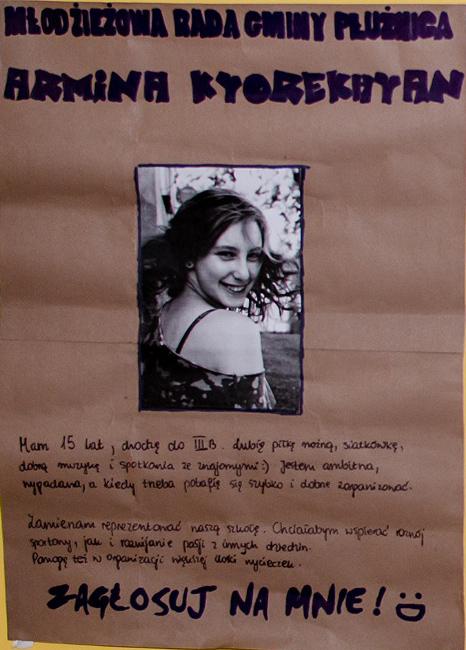 MŁODZIEŻOWA RADA GMINY PŁUŻNICA
ARMINA KYOREKHYAN
Mam 15 lat, chodzę do III B. Lubię piłkę nożną, siatkówkę,
dobrą muzykę i spotkania ze znajomymi :) Jestem ambitna,
wygadana, a kiedy trzeba potrafię się szybko i dobrze zorganizować.
Zamierzam reprezentować naszą szkołę. Chciałabym wspierać rozwój
sportowy, jak i rozwijanie pasji z innych dziedzin.
Pomogę też w organizacji większej ilości wycieczek.
ZAGŁOSUJ NA MNIE! :D